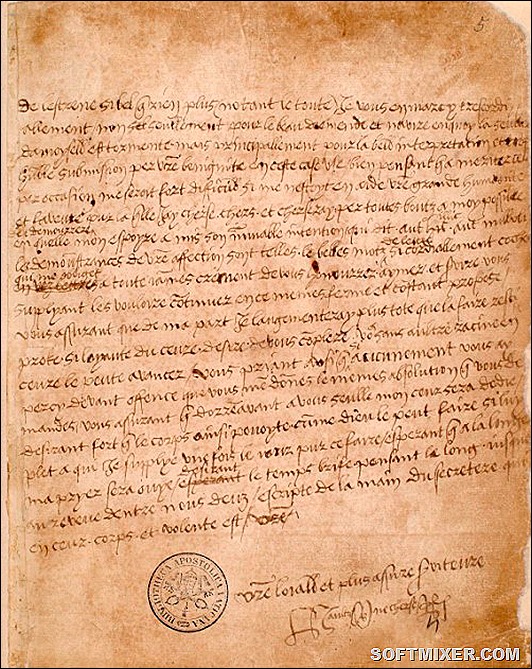 5
De lestrene si bel q rien plus notant le toute Je vous en marcy tres cordi
allement non sel seullement pour le beau diamende et navire en quoy la seulette
damoyselle est tormente mais principallement pour la bell interpretation et tres
humble submission per vre benignite en ceste case use bien pensant q a meriter cela
par occasion me seroit fort dificile si me nestoit en aide vre grande humanite
et faveur pour la qlle ay cherse chers et cherseray per toutes bouts a moy possible
de demourer
en quelle mon espoyre a mis son immuable intention qui dit aut illic aut nullibi
les demonstrances de vre affection sont telles le belles mots de lettre si cordiallement couches
qui me oblige
a toute iamais vrement de vous honnourrer aimer et servir vous
supliant les vouloire continuer en ce mesmes ferme et constant propose
vous assurant que de ma part Je laugmenteray plus tote que la faire resi
proke si loyaute du ceure desire de vous complere
ceure le peute avancer vous priant aussi q si aucunement vous ay
per cy devant offence que vous me donez le mesmes absolution q vous de
mandes vous assurant q dorreavant a vous seulle mon ceur sera dedie
desirant fort q le corps ainsi pouvoyt come dieu le peut faire si luy
plet a qui Je supplye une fois le iour pur ce faire esperant q a la longe
ma pryer sera ouye desirant le temps brife pensant le long iusques
au reveue dentre nous deuz escripte de la main du secretere qui
en ceur corps et volente est
vre loiall et plus assure serviteure
H autre ne cherse R
BIBLIOTHECA APOSTOLICA VATICANA
SOFTMIXER.COM